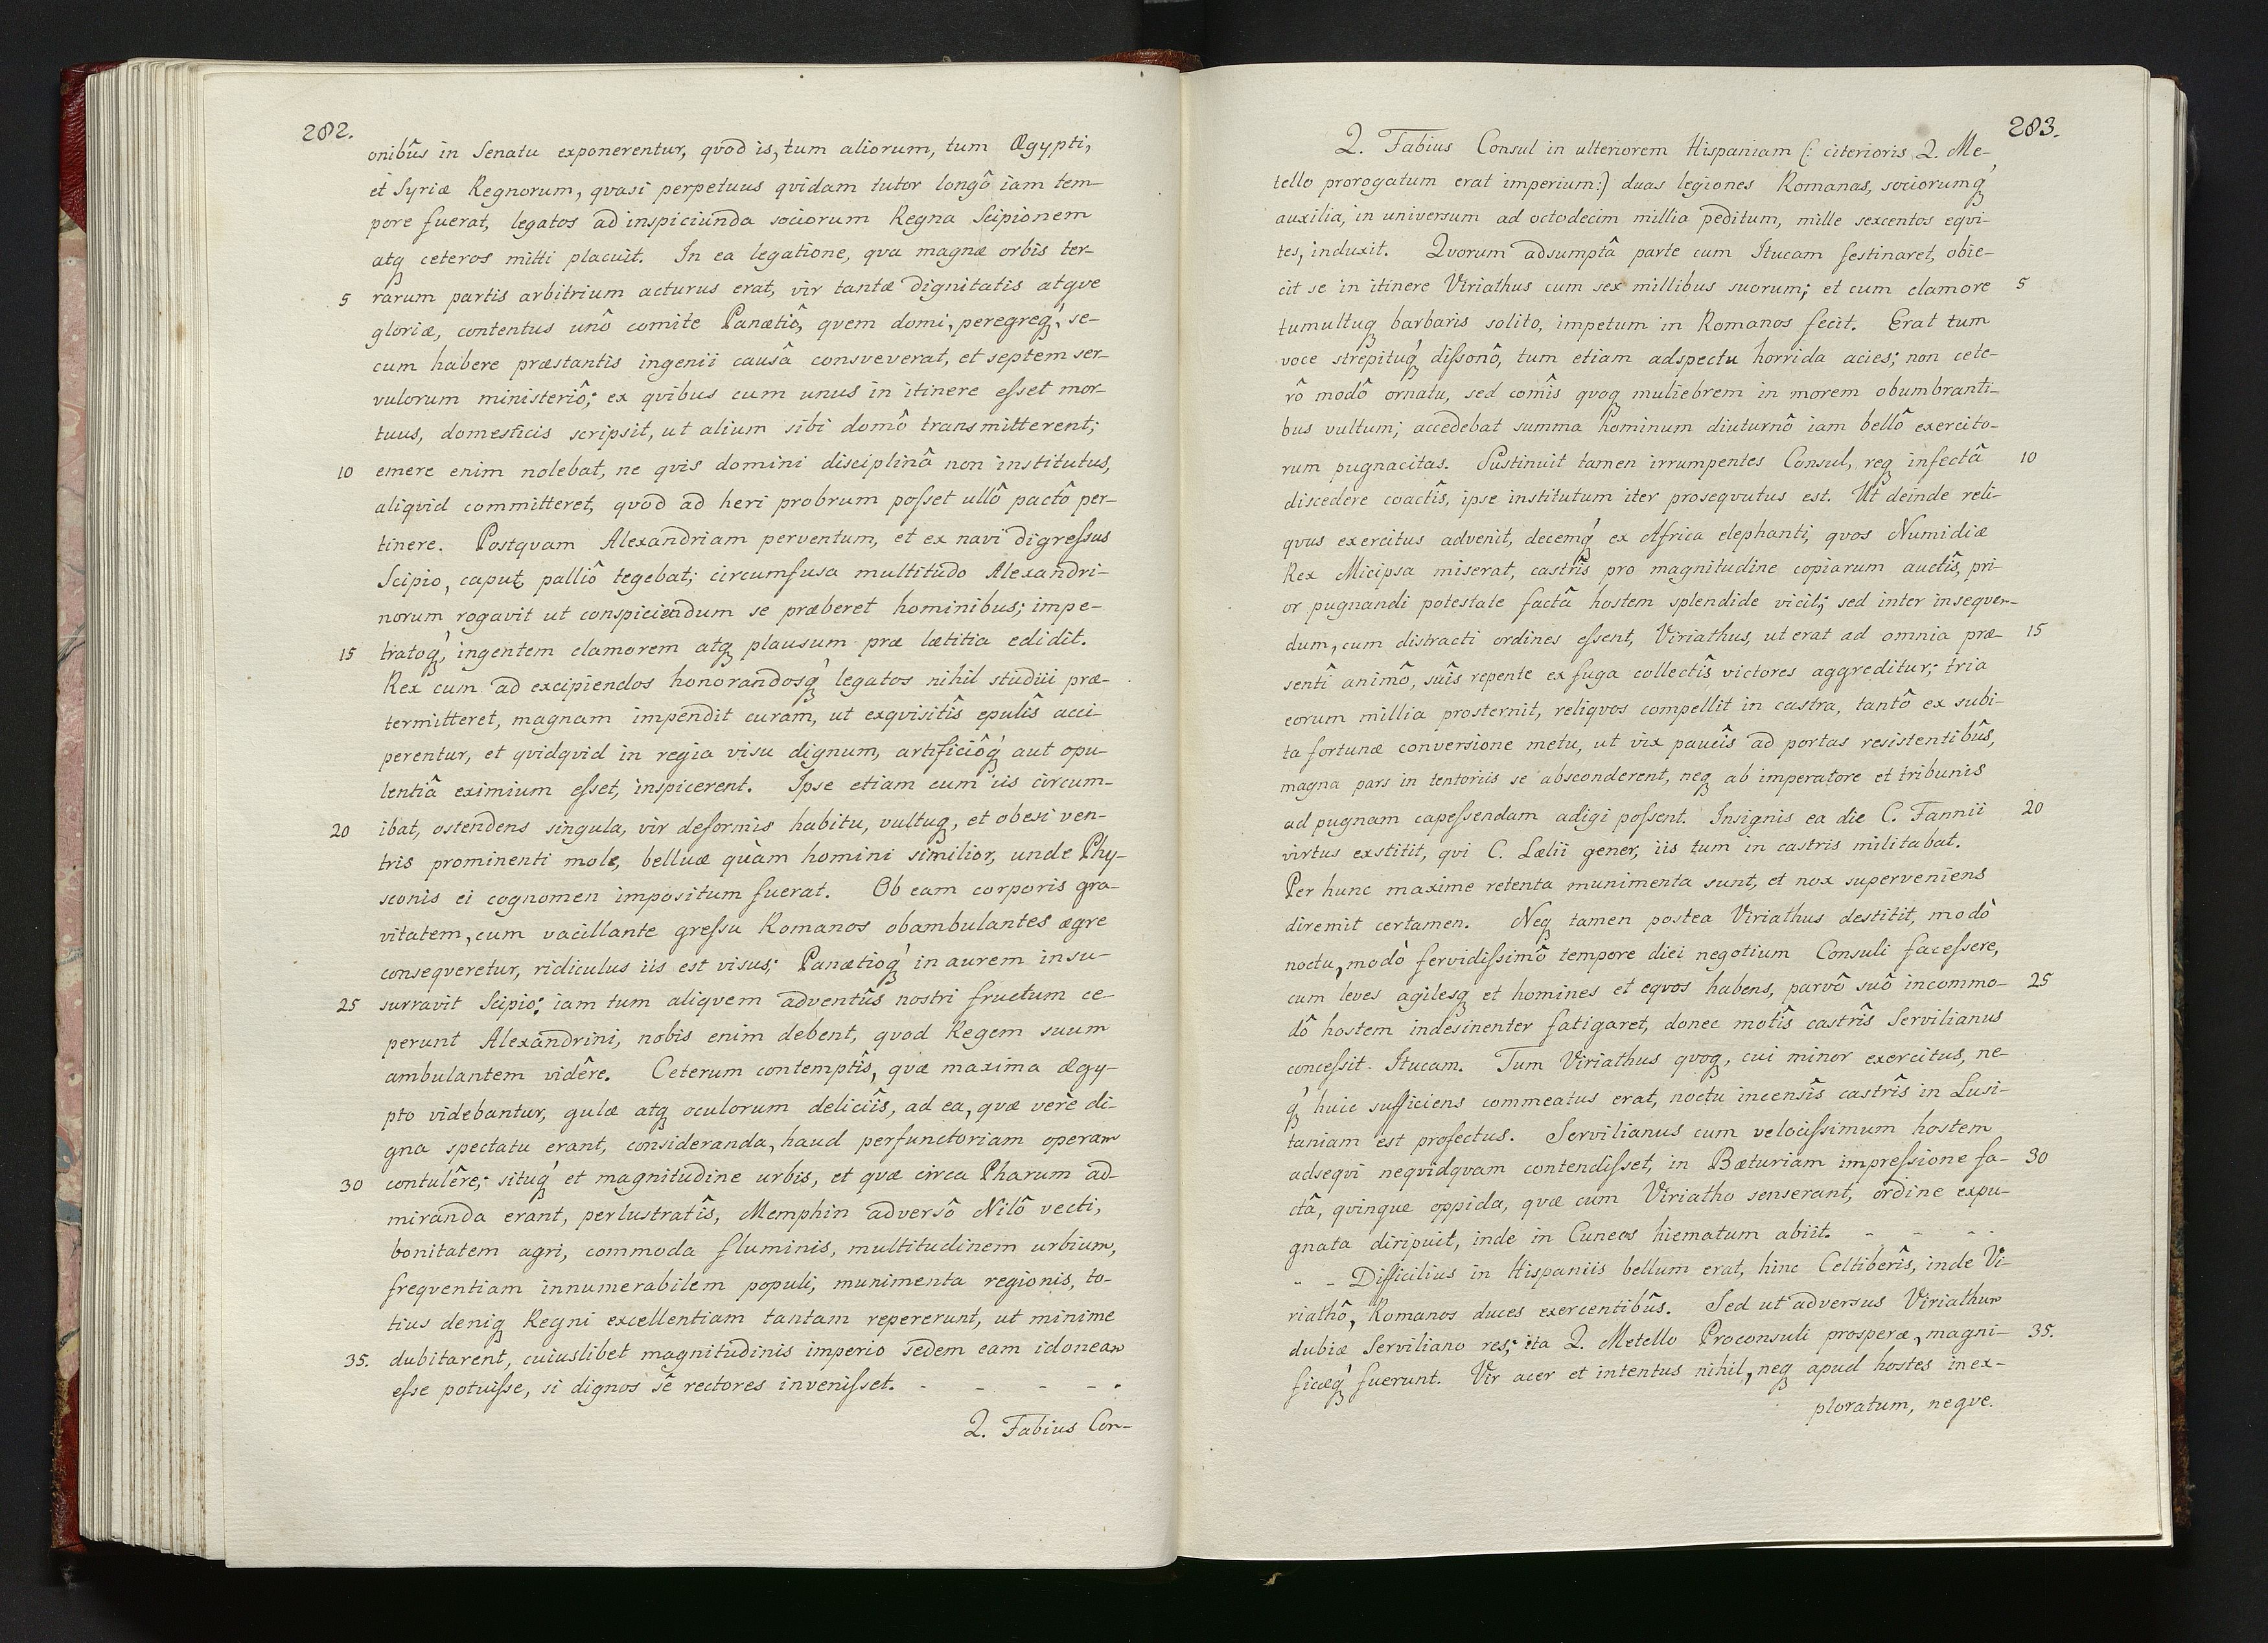 282.
onibûs in Senatu exponerentur, qvod is, tum aliorum, tum Ægypti,
et Syriæ Regnorum, qvasi perpetuus qvidam tutor longô iam tem-
pore fuerat, legatos ad inspiciunda sociorum Regna Scipionem
atq ceteros mitti placuit. In ea legatione, qva magnæ orbis ter-
5 rarum partis arbitrium acturus erat, vir tantæ dignitatis atqve
gloriæ, contentus unô comite Panætiô, qvem domi, peregreq́, se-
cum habere præstantis ingenii causâ consveverat, et septem ser-
vulorum ministeriô; ex qvibus cum unus in itinere esset mor-
tuus, domesticis scripsit, ut alium sibi domô transmitterent;
10 emere enim nolebat, ne qvis domini disciplinâ non institutus,
aliqvid committeret, qvod ad heri probrum posset ullô pactô per-
tinere. Postqvam Alexandriam perventum, et ex navi digressus
Scipio, caput palliô tegebat; circumfusa multitudo Alexandri-
norum rogavit ut conspiciendum se præberet hominibus; impe-
15 tratoq́, ingentem clamorem atq plausum præ lætitia edidit.
Rex cum ad excipiendos honorandosq́ legatos nihil studii præ-
termitteret, magnam impendit curam, ut exqvisitîs epulîs acci-
perentur, et qvidqvid in regia visu dignum, artificiôq́ aut opu-
lentiâ eximium esset, inspicerent. Ipse etiam cum iis circum-
20 ibat, ostendens singula, vir deformis habitu, vultuq, et obesi ven-
tris prominenti mole, belluæ quàm homini similior, unde Phy-
sconis ei cognomen impositum fuerat. Ob eam corporis gra-
vitatem, cum vacillante gressu Romanos obambulantes ægre
conseqveretur, ridiculus iis est visus; Panætioq́ in aurem insu-
25 surravit Scipio: iam tum aliqvem adventûs nostri fructum ce-
perunt Alexandrini, nobis enim debent, qvod Regem suum
ambulantem vidêre. Ceterum contemptîs, qvæ maxima Ægy-
pto videbantur, gulæ atq oculorum deliciîs, ad ea, qvæ verè di-
gna spectatu erant, consideranda, haud perfunctoriam operam
30 contulêre; situq́ et magnitudine urbis, et qvæ circa Pharum ad-
miranda erant, perlustratîs, Memphin adversô Nilô vecti,
bonitatem agri, commoda fluminis, multitudinem urbium,
freqventiam innumerabilem populi, munimenta regionis, to-
tius deniq Regni excellentiam tantam repererunt, ut minime
35. dubitarent, cuiuslibet magnitudinis imperio sedem eam idoneam
esse potuisse, si dignos sê rectores invenisset. - - - - -
Q. Fabius Con-
283.
Q. Fabius Consul in ulteriorem Hispaniam (: citerioris Q. Me-
tello prorogatum erat imperium:) duas legiones Romanas, sociorumq́
auxilia, in universum ad octodecim millia peditum, mille sexcentos eqvi-
tes, induxit. Qvorum adsumptâ parte cum Itucam festinaret, obie-
cit se in itinere Viriathus cum sex millibus suorum; et cum clamore 5
tumultuq barbaris solito, impetum in Romanos fecit. Erat tum
voce strepituq́ dissonô, tum etiam adspectu horrida acies; non cete-
rô modô ornatu, sed comîs qvoq muliebrem in morem obumbranti-
bus vultum; accedebat summa hominum diuturnô iam bellô exercito-
rum pugnacitas. Sustinuit tamen irrumpentes Consul, req infectâ 10
discedere coactîs, ipse institutum iter proseqvutus est. Ut deinde reli-
qvus exercitus advenit, decemq́ ex Africa elephanti, qvos Numidiæ
Rex Micipsa miserat, castrîs pro magnitudine copiarum auctîs, pri-
or pugnandi potestate factâ hostem splendide vicit; sed inter inseqven-
dum, cum distracti ordines essent, Viriathus, ut erat ad omnia præ- 15
sentî animô, suîs repente ex fuga collectîs victores aggreditur; tria
eorum millia prosternit, reliqvos compellit in castra, tantô ex subi-
ta fortunæ conversione metu, ut vix paucîs ad portas resistentibûs,
magna pars in tentoriis se absconderent, neq ab imperatore et tribunis
ad pugnam capessendam adigi possent. Insignis ea die C. Fannii 20
virtus exstitit, qvi C. Lælii gener, iis tum in castris militabat.
Per hunc maxime retenta munimenta sunt, et nox superveniens
diremit certamen. Neq tamen postea Viriathus destitit, modò
noctu, modò fervidissimô tempore diei negotium Consuli facessere,
cum leves agilesq et homines et eqvos habens, parvô suô incommo- 25
dô hostem indesinenter fatigaret, donec motîs castrîs Servilianus
concessit Itucam. Tum Viriathus qvoq, cui minor exercitus, ne-
q́ huic sufficiens commeatus erat, noctu incensîs castrîs in Lusi-
taniam est profectus. Servilianus cum velocissimum hostem
adseqvi neqvidqvam contendisset, in Bæturiam impressione fa- 30
ctâ, qvinque oppida, qvæ cum Viriatho senserant, ordine expu-
gnata diripuit, inde in Cuneos hiematum abiit. - - - -
- - Difficilius in Hispaniis bellum erat, hinc Celtiberîs, inde Vi-
riathô, Romanos duces exercentibûs. Sed ut adversus Viriathum
dubiæ Serviliano res; ita Q. Metello Proconsuli prosperæ, magni- 35.
ficæq́ fuerunt. Vir acer et intentus nihil, neq apud hostes inex-
ploratum, neqve.